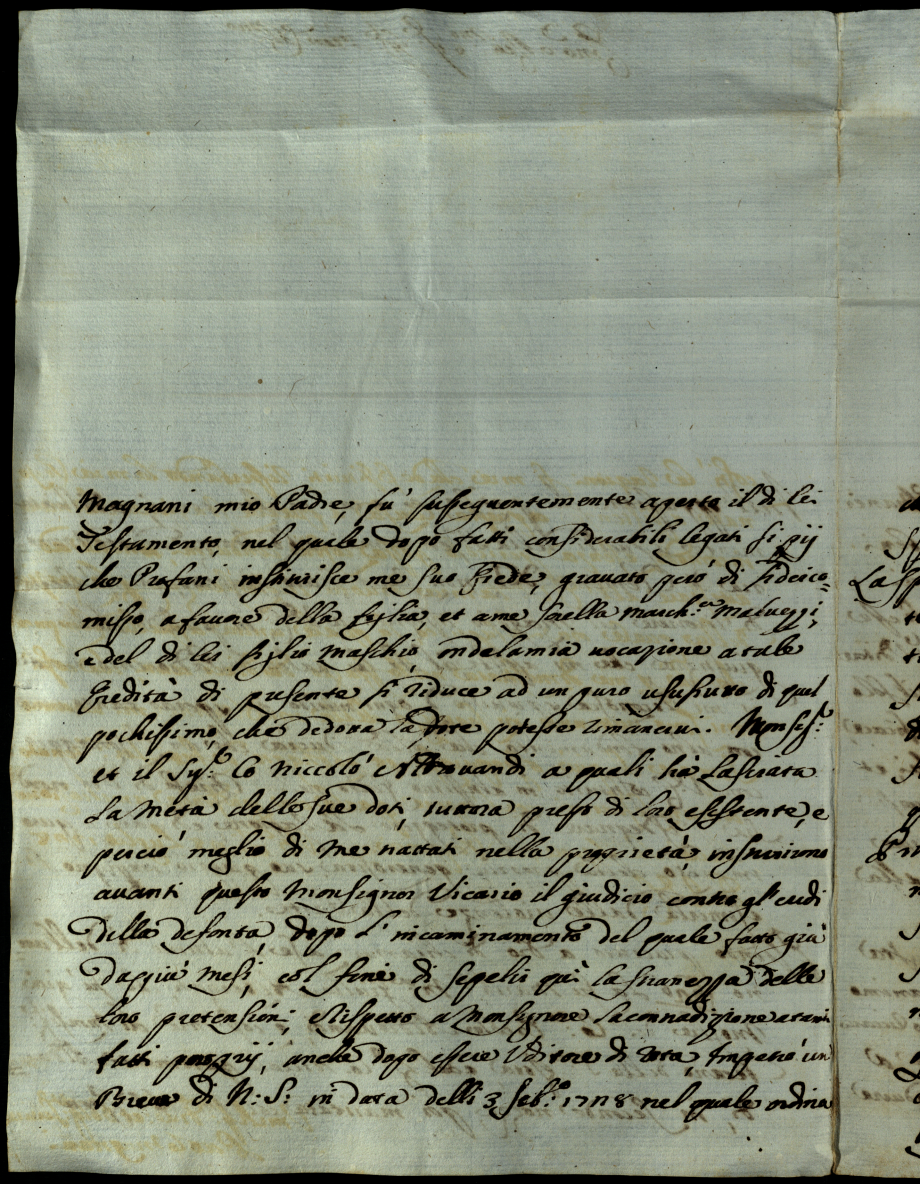 Magnani mio Padre, fù susseguentemente aperto il di lei
Testamento, nel quale dopo fatti considerabili legati sì pij
che Profani instituisce me suo Erede, gravato però di fideico=
misso, a favore della figlia, et a me sorella March.ª Malvezzi,
e del di lei figlio maschio, onde la mia vocazione a tale
Eredità di presente si riduce ad un puro usufrutto di quel
pochissimo, che dedotta la dote potesse rimanervi. Monsig.r
et il Sig.r Co Niccolò Aldrovandi a quali hà lasciata
la metà delle sue doti, tuttora presso di loro esistente, e
perciò meglio di me trattati nella proprietà, instituirono
avanti questo Monsignor Vicario il giudicio contro gl'eredi
della defonta, dopo l'incaminamento del quale fatto già
da più mesi, col fine di sepelir quì la stranezza delle
loro pretensioni, e rispetto a Monsignore la contradizione a tanti
fatti proprij, anche dopo essere Uditore di Rota, Impetrò un
Breve di N: S: in data delli 3 Feb.º 1728 nel quale ordina